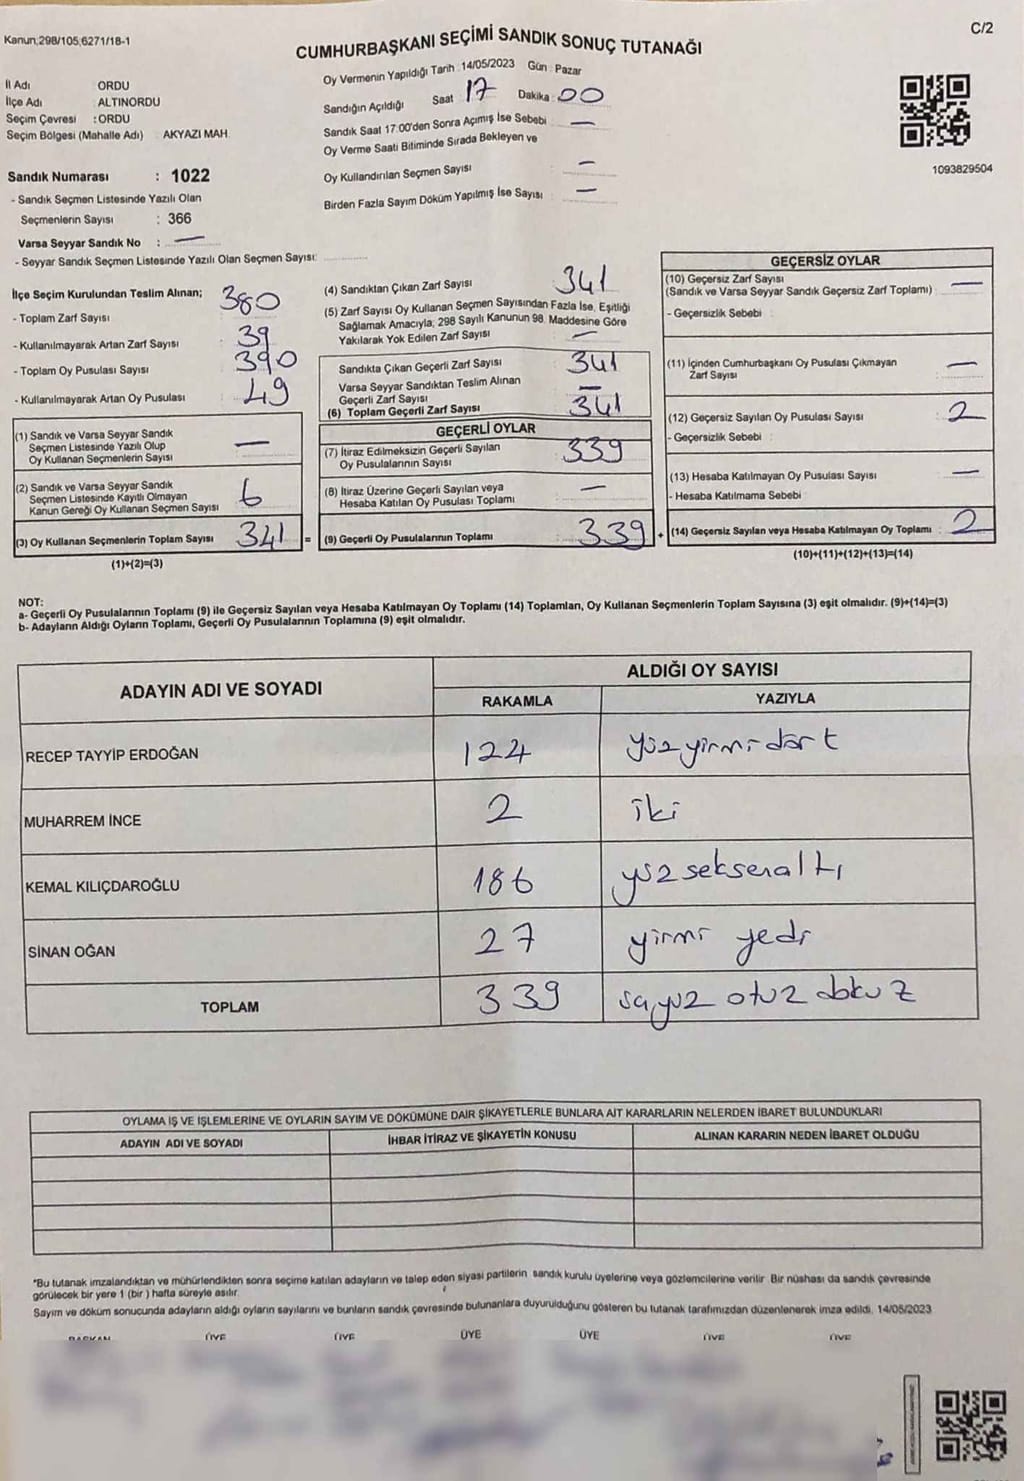 Kanun;298/105;6271/18-1
C/2
CUMHURBAŞKANI SEÇİMİ SANDIK SONUÇ TUTANAĞI
İl Adı ORDU
İlçe Adı ALTINORDU
Seçim Çevresi :ORDU
Seçim Bölgesi (Mahalle Adı) AKYAZI MAH.
Oy Vermenin Yapıldığı Tarih :14/05/2023 Gün : Pazar
Sandığın Açıldığı Saat 17 Dakika : 00
Sandık Saat 17:00'den Sonra Açımış İse Sebebi —
Oy Verme Saati Bitiminde Sırada Bekleyen ve
Oy Kullandırılan Seçmen Sayısı —
Birden Fazla Sayım Döküm Yapılmış İse Sayısı : —
1093829504
Sandık Numarası : 1022
- Sandık Seçmen Listesinde Yazılı Olan
Seçmenlerin Sayısı : 366
Varsa Seyyar Sandık No : —
- Seyyar Sandık Seçmen Listesinde Yazılı Olan Seçmen Sayısı:
İlçe Seçim Kurulundan Teslim Alınan;
- Toplam Zarf Sayısı 380
- Kullanılmayarak Artan Zarf Sayısı : 39
- Toplam Oy Pusulası Sayısı : 390
- Kullanılmayarak Artan Oy Pusulası : 49
(1) Sandık ve Varsa Seyyar Sandık
Seçmen Listesinde Yazılı Olup
Oy Kullanan Seçmenlerin Sayısı —
(2) Sandık ve Varsa Seyyar Sandık
Seçmen Listesinde Kayıtlı Olmayan
Kanun Gereği Oy Kullanan Seçmen Sayısı 6
(3) Oy Kullanan Seçmenlerin Toplam Sayısı 341 =
(1)+(2)=(3)
(4) Sandıktan Çıkan Zarf Sayısı 341
(5) Zarf Sayısı Oy Kullanan Seçmen Sayısından Fazla İse, Eşitliği
Sağlamak Amacıyla, 298 Sayılı Kanunun 98. Maddesine Göre
Yakılarak Yok Edilen Zarf Sayısı —
Sandıkta Çıkan Geçerli Zarf Sayısı 341
Varsa Seyyar Sandıktan Teslim Alınan
Geçerli Zarf Sayısı —
(6) Toplam Geçerli Zarf Sayısı 341
GEÇERLİ OYLAR
(7) İtiraz Edilmeksizin Geçerli Sayılan
Oy Pusulalarının Sayısı 339
(8) İtiraz Üzerine Geçerli Sayılan veya
Hesaba Katılan Oy Pusulası Toplamı —
(9) Geçerli Oy Pusulalarının Toplamı 339 +
GEÇERSİZ OYLAR
(10) Geçersiz Zarf Sayısı
(Sandık ve Varsa Seyyar Sandık Geçersiz Zarf Toplamı) —
- Geçersizlik Sebebi :
(11) İçinden Cumhurbaşkanı Oy Pusulası Çıkmayan
Zarf Sayısı —
(12) Geçersiz Sayılan Oy Pusulası Sayısı 2
- Geçersizlik Sebebi :
(13) Hesaba Katılmayan Oy Pusulası Sayısı —
- Hesaba Katılmama Sebebi
(14) Geçersiz Sayılan veya Hesaba Katılmayan Oy Toplamı : 2
(10)+(11)+(12)+(13)=(14)
NOT:
a- Geçerli Oy Pusulalarının Toplamı (9) ile Geçersiz Sayılan veya Hesaba Katılmayan Oy Toplamı (14) Toplamları, Oy Kullanan Seçmenlerin Toplam Sayısına (3) eşit olmalıdır. (9)+(14)=(3)
b- Adayların Aldığı Oyların Toplamı, Geçerli Oy Pusulalarının Toplamına (9) eşit olmalıdır.
ADAYIN ADI VE SOYADI ALDIĞI OY SAYISI
RAKAMLA YAZIYLA
RECEP TAYYİP ERDOĞAN 124 yüzyirmidört
MUHARREM İNCE 2 iki
KEMAL KILIÇDAROĞLU 186 yüzseksenaltı
SİNAN OĞAN 27 yirmi yedi
TOPLAM 339 üçyüz otuz dokuz
OYLAMA İŞ VE İŞLEMLERİNE VE OYLARIN SAYIM VE DÖKÜMÜNE DAİR ŞİKAYETLERLE BUNLARA AİT KARARLARIN NELERDEN İBARET BULUNDUKLARI
ADAYIN ADI VE SOYADI İHBAR İTİRAZ VE ŞİKAYETİN KONUSU ALINAN KARARIN NEDEN İBARET OLDUĞU
*Bu tutanak imzalandıktan ve mühürlendikten sonra seçime katılan adayların ve talep eden siyasi partilerin sandık kurulu üyelerine veya gözlemcilerine verilir. Bir nüshası da sandık çevresinde
görülecek bir yere 1 (bir ) hafta süreyle asılır.
Sayım ve döküm sonucunda adayların aldığı oyların sayılarını ve bunların sandık çevresinde bulunanlara duyurulduğunu gösteren bu tutanak tarafımızdan düzenlenerek imza edildi. 14/05/2023
BAŞKAN ÜYE ÜYE ÜYE ÜYE ÜYE ÜYE